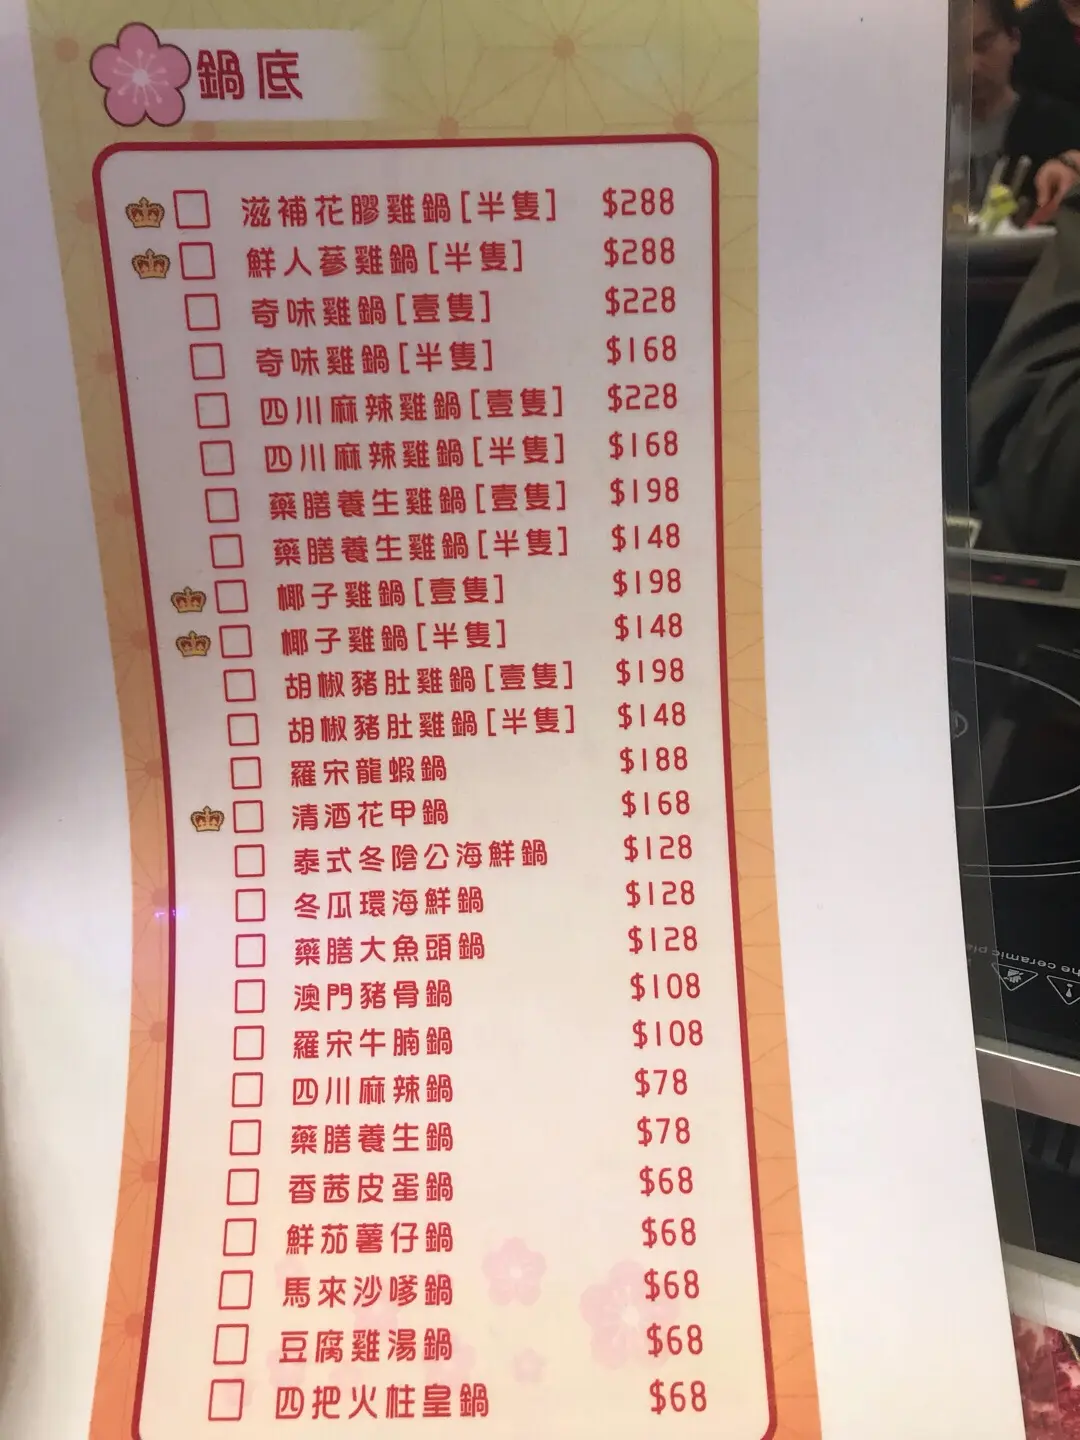 鍋底
滋補花膠雞鍋[半隻] $288
鮮人蔘雞鍋[半隻] $288
奇味雞鍋[壹隻] $228
奇味雞鍋[半隻] $168
四川麻辣雞鍋[壹隻] $228
四川麻辣雞鍋[半隻] $168
藥膳養生雞鍋[壹隻] $198
藥膳養生雞鍋[半隻] $148
椰子雞鍋[壹隻] $198
椰子雞鍋[半隻] $148
胡椒豬肚雞鍋[壹隻] $198
胡椒豬肚雞鍋[半隻] $148
羅宋龍蝦鍋 $188
清酒花甲鍋 $168
泰式冬陰公海鮮鍋 $128
冬瓜環海鮮鍋 $128
藥膳大魚頭鍋 $128
澳門豬骨鍋 $108
羅宋牛腩鍋 $108
四川麻辣鍋 $78
藥膳養生鍋 $78
香茜皮蛋鍋 $68
鮮茄薯仔鍋 $68
馬來沙嗲鍋 $68
豆腐雞湯鍋 $68
四把火炷皇鍋 $68
he ceramic pl